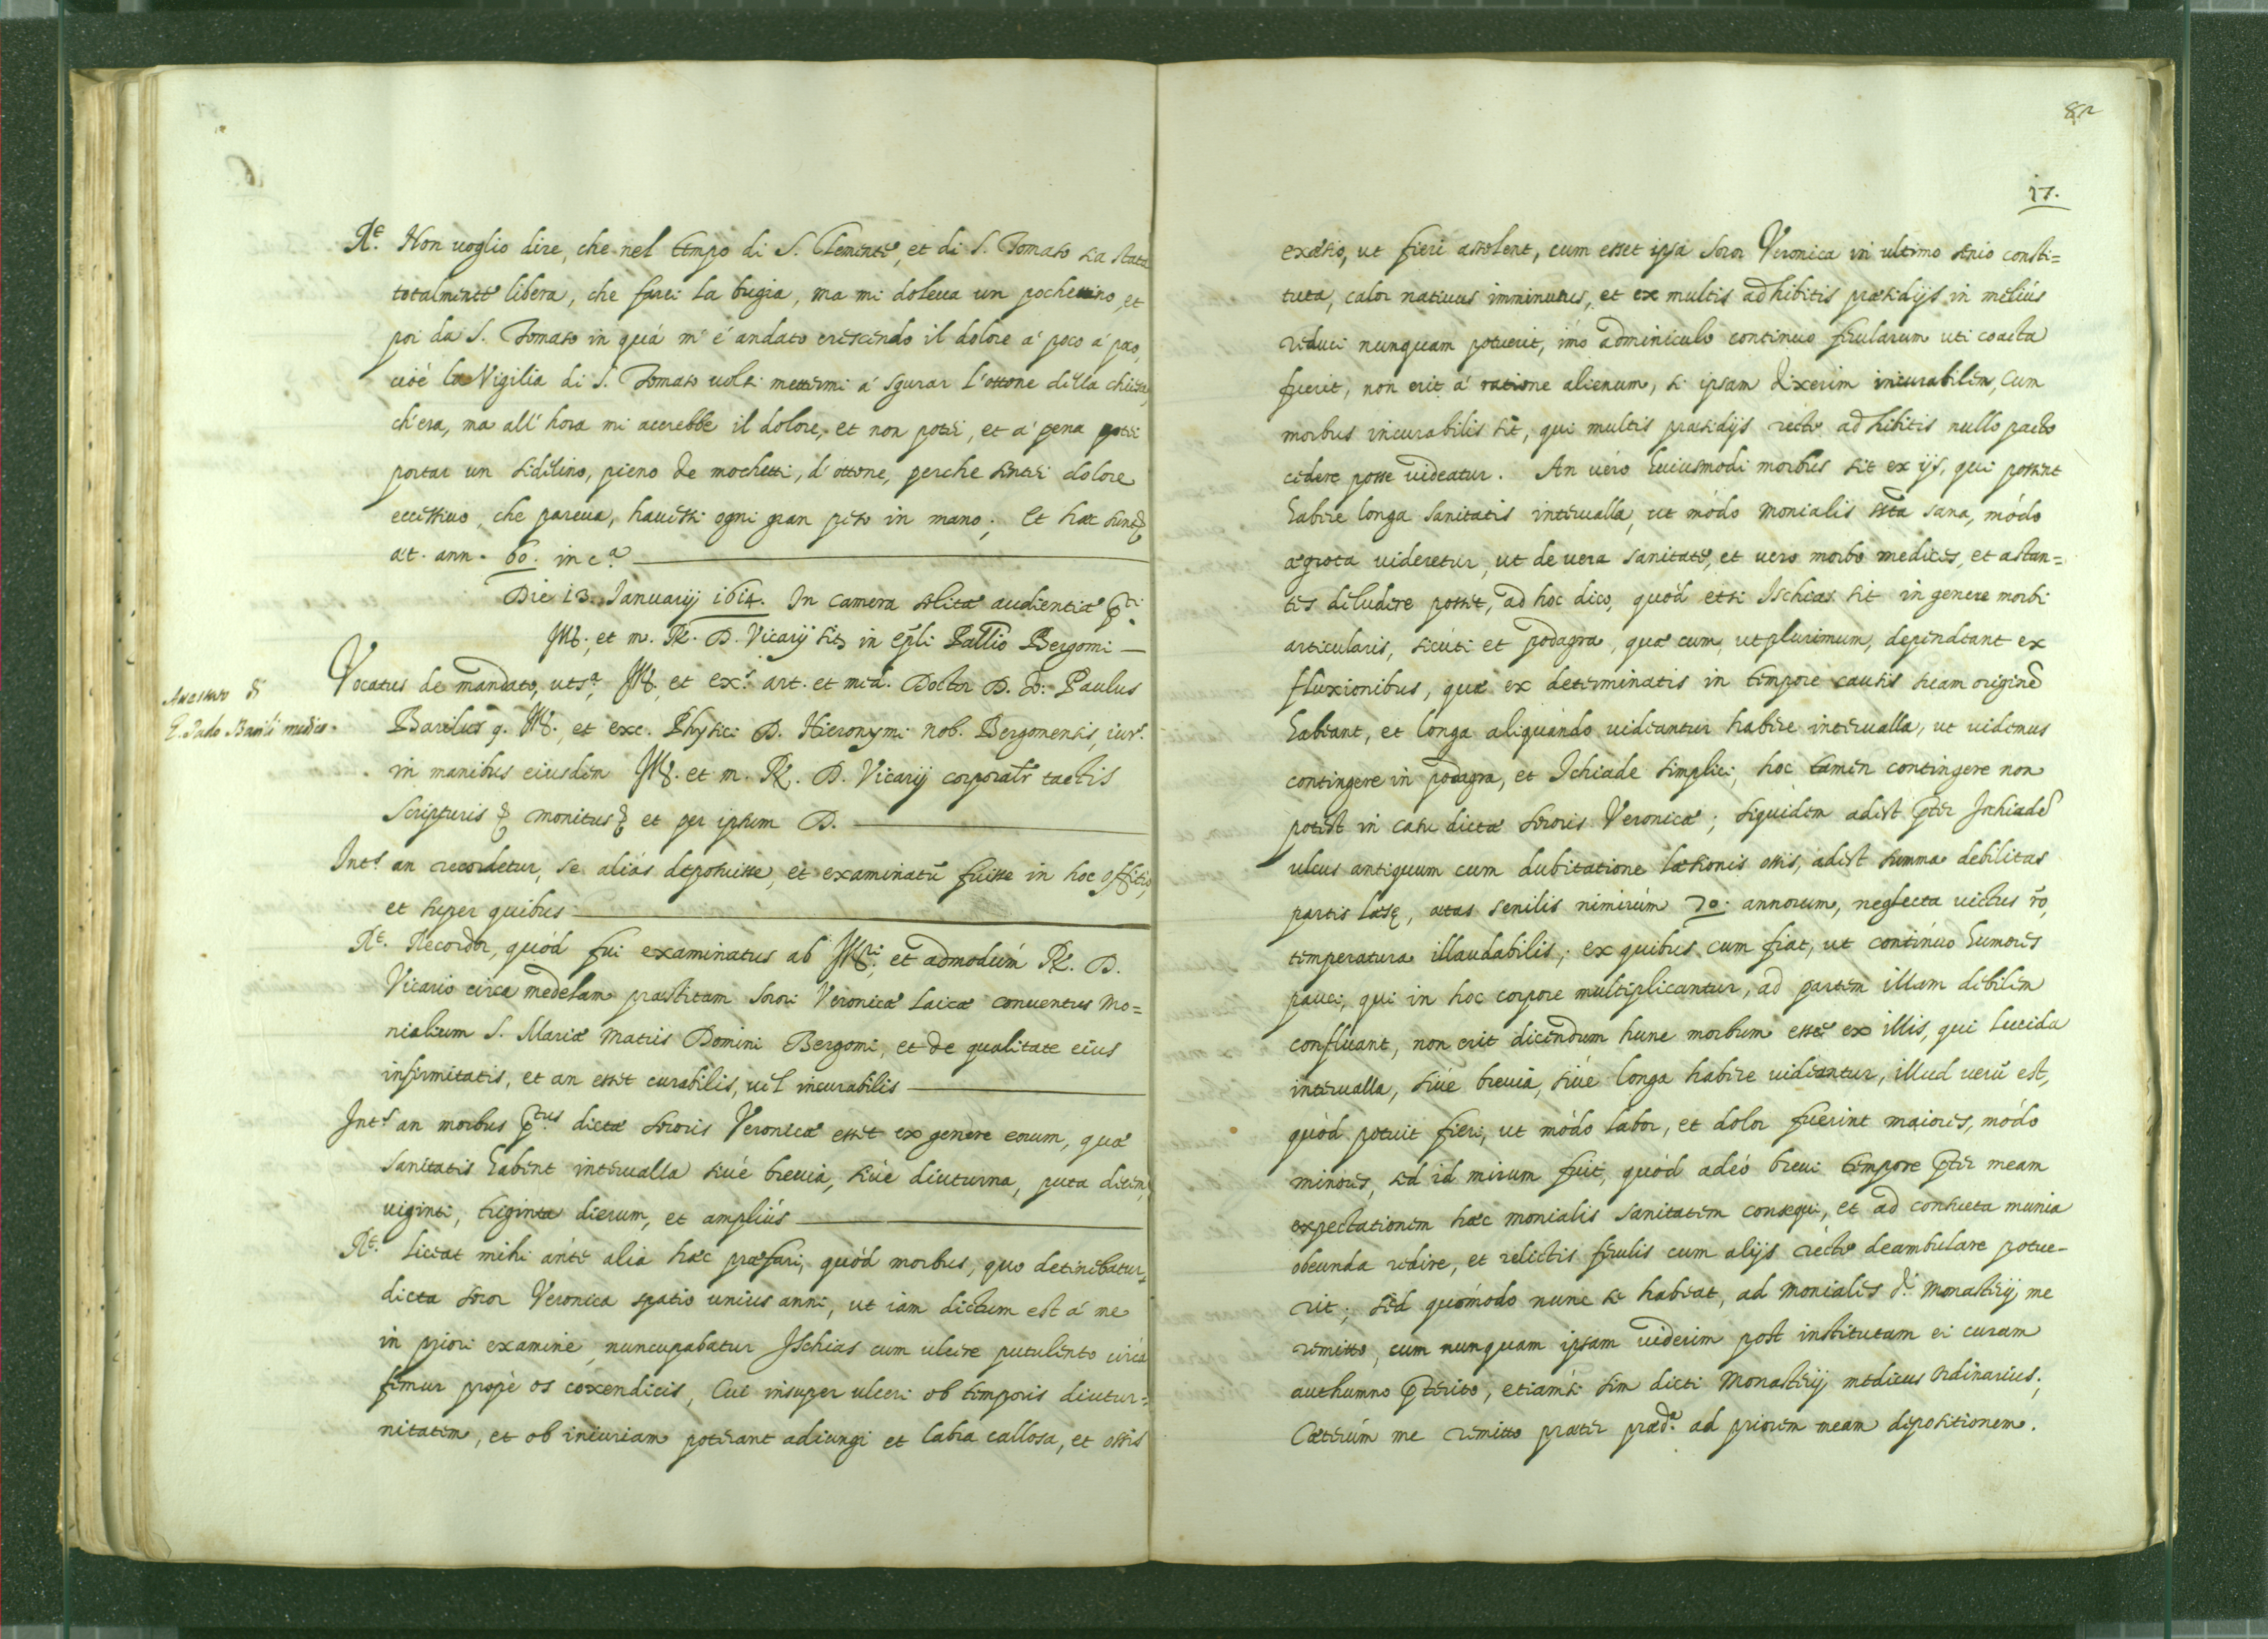 R.e Non uoglio dire, che nel tempo di S. Clemente, et di S. Tomaso sia stata
totalmente libera, che farei la bugia, ma mi doleua un pochettino, et
poi da S. Tomaso in quà m'é andato crescendo il dolore à poco à poco,
cioè la Vigilia di S. Tomaso uolsi mettermi à sgurar l'ottone della chiesa,
ch'era, ma all'hora mi accrebbe il dolore, et non potei, et à pena potei
portar un sidelino, pieno de mochetti, d'ottone, perche sentei dolore
eccessiuo, che pareua, hauessi ogni gran peso in mano; Et hæc sunt &
æt. ann. 60. in c.a
Die 13. Januarij 1614. In camera solitæ audientiæ p.ti
Ill. et m. R. D. Vicarij sita in ep̃li Pallio Bergomi
Anastasio di
D. Paulo Barili medico
Vocatus de mandato, uts.a, Ill. et ex.s art. et med. Doctor D. D. Paulus
Barilus q. Ill. et exc. Physici D. Hieronymi nob. Bergomensis, iur.
in manibus eiusdem Ill. et m. R. D. Vicarij corporalr tactis
scripturis & monitus & et per ipsum D.
Int.s an recordetur, se aliás deposuisse, et examinatũ fuisse in hoc offitio,
et super quibus
R.t Recordor, quód fui examinatus ab Ill.ri, et admodúm R. D.
Vicario circa medelam præstitam Sorori Veronicæ laicæ conuentus mo=
nialium S. Mariæ Matris Domini Bergomi, et de qualitate eius
infirmitatis, et an esset curabilis, uel incurabilis
Int.s an morbus p.tus dictæ sororis Veronicæ esset ex genere eorum, quæ
sanitatis habent interualla siué breuia, siue diuturna, puta decem,
uiginti, triginta dierum, et ampliùs
R.t Liceat mihi ánte alia hæc præfari, quód morbus, quo detinebatur
dicta soror Veronica spatio unius anni, ut iam dictum est á me
in priori examine, nuncupabatur Ischias cum ulcere putulento circà
femur propè os coxendicis, Cui insuper ulceri ob temporis diutur=
nitatem, et ob iniuriam poterant adiungi et labia callosa, et ossis
82
17.
exæsio, ut fieri assolent, cum esset ipsa soror Veronica in ultimo senio consti=
tuta, calor natiuus imminutus, et ex multis adhibitis præsidijs in meliús
reduci nunquam potuerit, imò adminiculo continuo ferularum uti coacta
fuerit, non erit á ratione alienum, si ipsam dixerim incurabilem, Cum
morbus incurabilis sit, qui multis præsidijs recte adhibitis nullo pacto
cedere posse uideatur. An uéro huiusmodi morbus sit ex ijs, qui possint
habere longa sanitatis interualla, ut módo monialis ista sana, módo
ægrota uideretur, ut de uera sanitate, et uero morbo medicos, et astan=
tes deludere posset, ad hoc dico, quód etsi Ischias sit in genere morbi
articularis, sicúti et podagra, quæ cum, ut plurimum, dependeant ex
fluxionibus, quæ ex determinatis in tempore causis suam originẽ
habeant, et longa aliquándo uideantur habere interualla, ut uidemus
contingere in podagra, et Ischiade simplici, hoc tamen contingere non
potest in casu dictæ sororis Veronicæ; siquidem adest p̃ter Ischiadẽ
ulcus antiquum cum dubitatione læsionis ossis, adest summa debilitas
partis læsę, ætas senilis nimirúm 70. annorum, neglecta uictus rõ,
temperatura illaudabilis; ex quibus cum fiat, ut contínuo humores
praui, qui in hoc corpore multiplicantur, ad partem illam debilem
confluant, non erit dicendum hunc morbum esse ex illis, qui lucida
interualla, siúe breuia, siúe longa habere uideantur, illud uerũ est,
quòd potuit fieri, ut mòdo labor, et dolor fuerint maiores, módo
minores, sed id mirum fuit, quòd adeó breui tempore p̃ter meam
expectationem hæc monialis sanitatem consequi, et ad consueta munia
obeunda redire, et relictis ferulis cum alijs rectè deambulare potue-
rit; sed quómodo nunc se habeat, ad moniales d.i Monasterij me
remitto, cum nunquam ipsam uiderim post institutam ei curam
authumno p̃terito, etiamsi sim dicti Monasterij medicus ordinarius;
Cæterúm me remitto præter præd.a ad priorem meam depositionem.